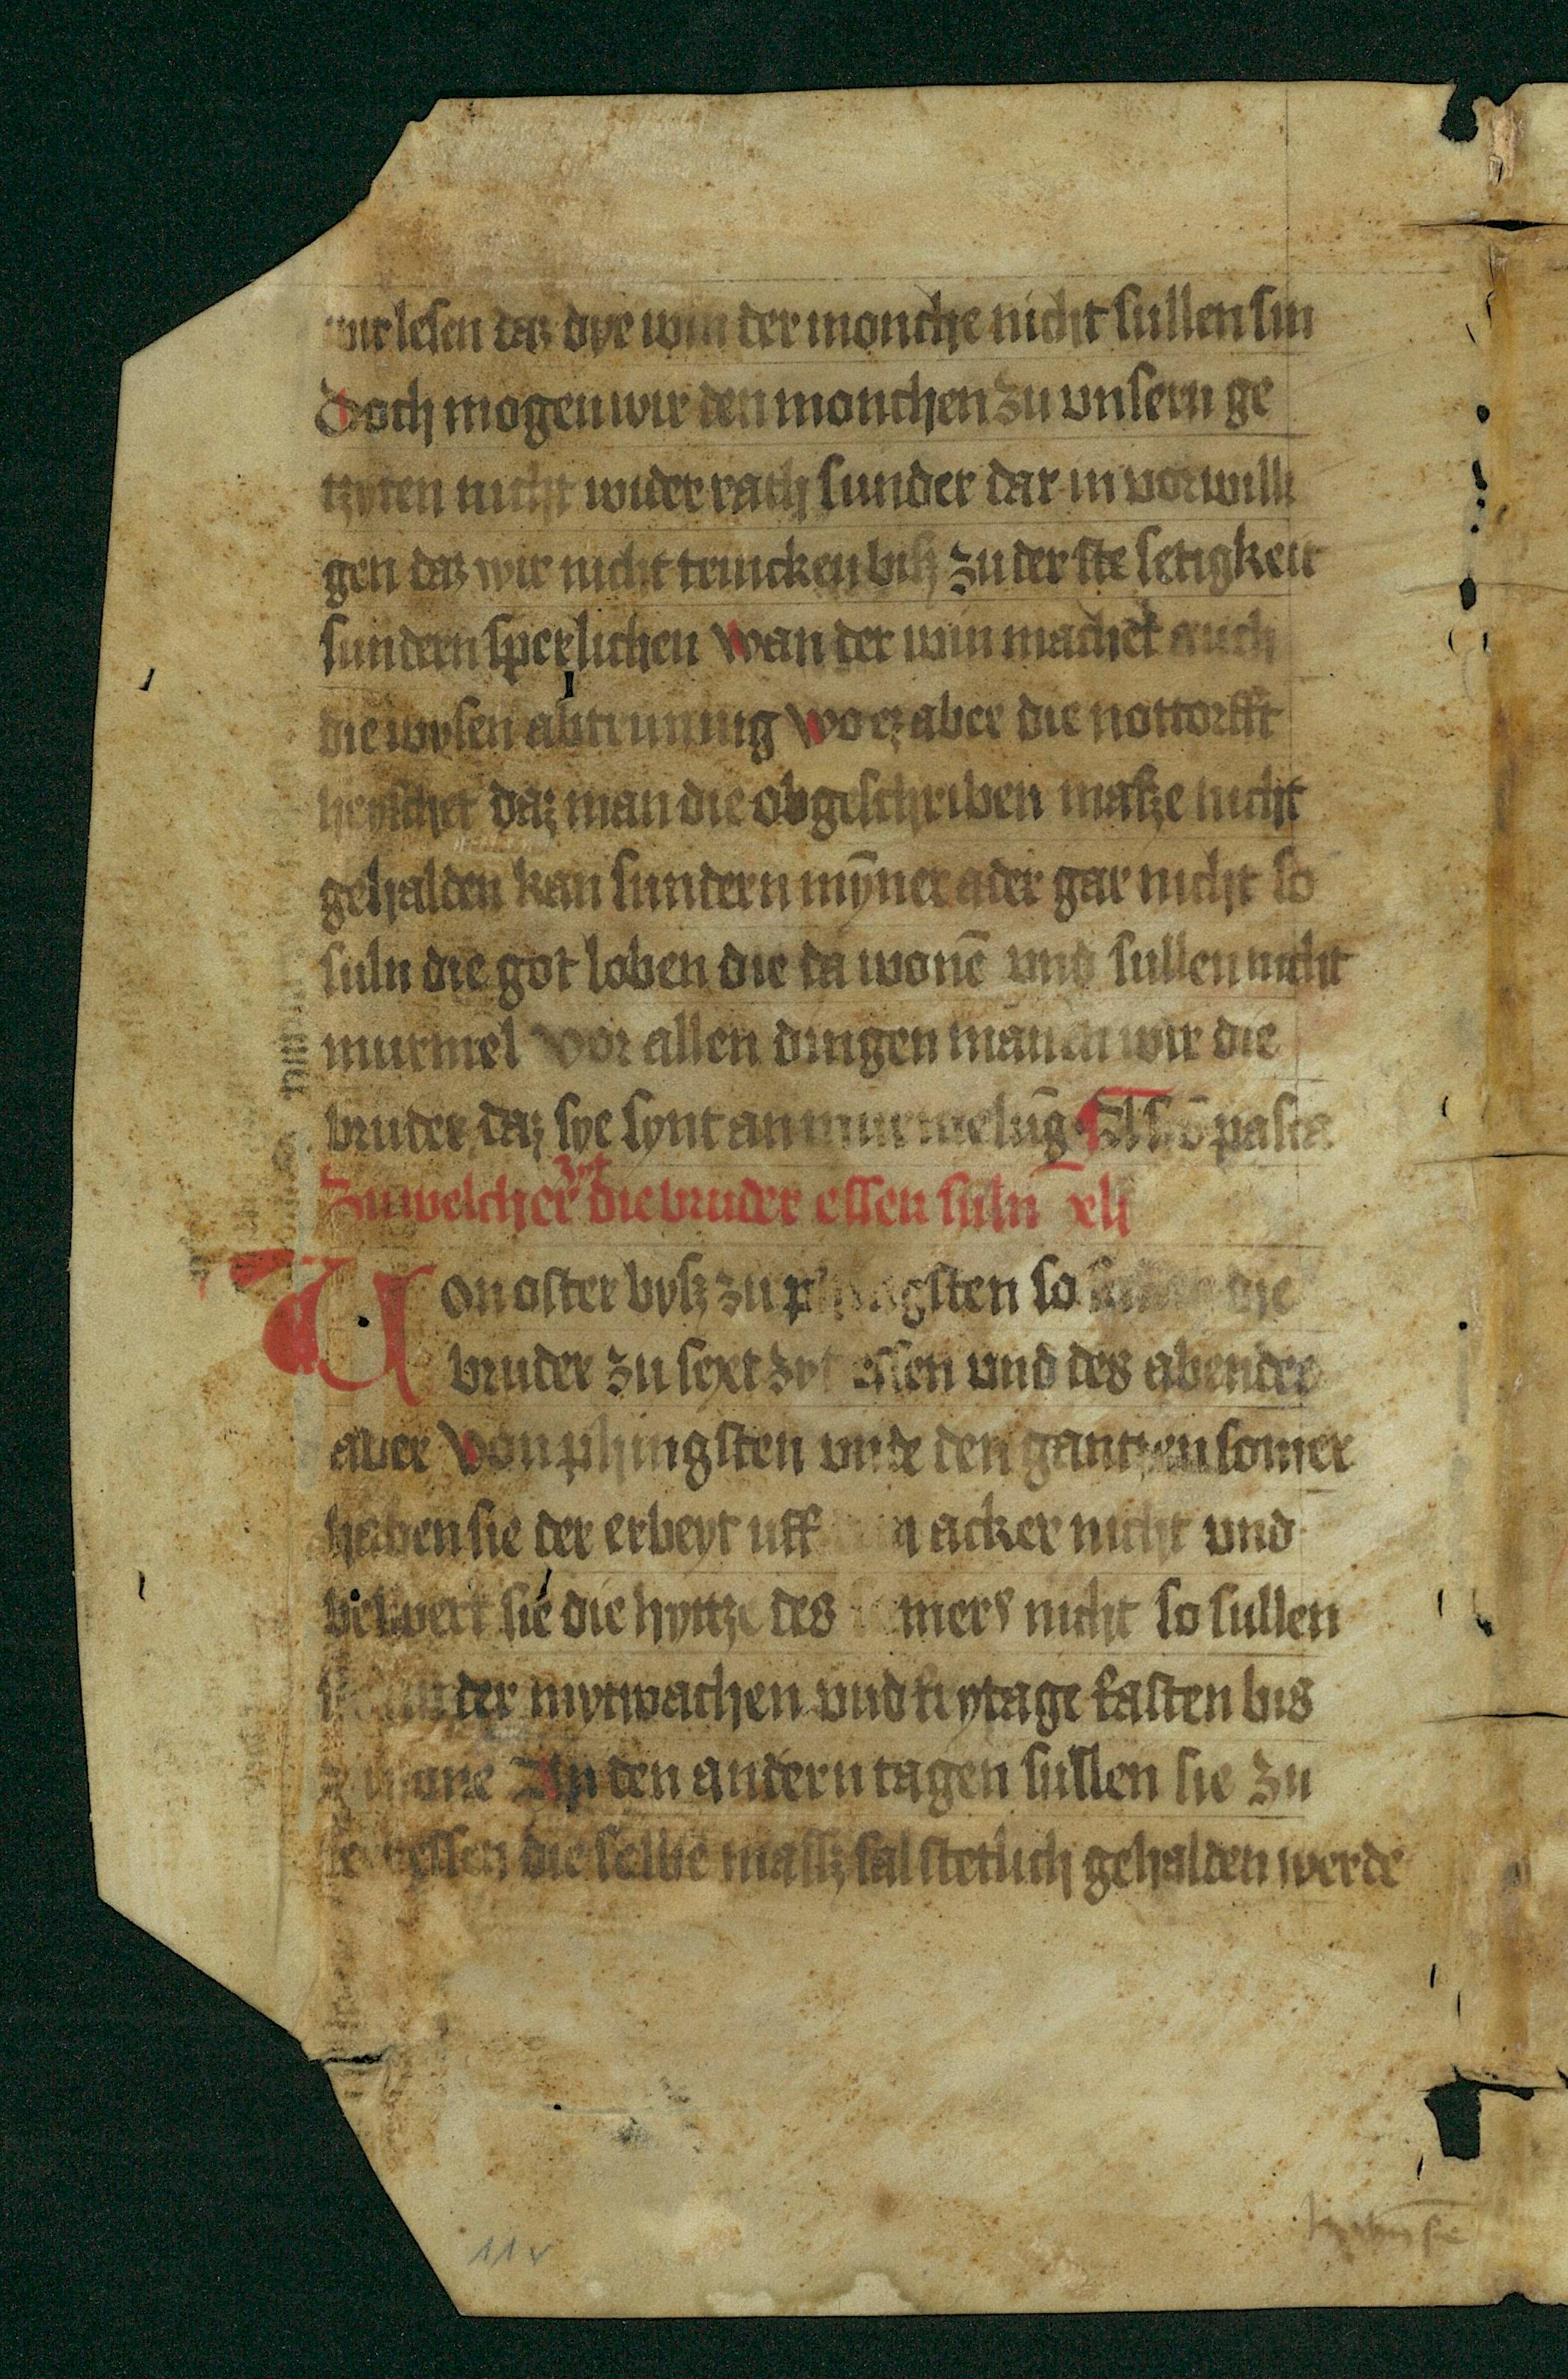 wir lesen daz dye win der monche nicht sullen sin
Doch mogen wir den monchen zu vnsern ge
tzyten nicht wider rath sunder dar in vorwilli
gen daz wir nicht trincken bisz zu der ste setigkeit
sundern sperlichen Wan der win machet auch
die wysen abtrunnig Wo ez aber die nottorfft
heyschet daz man die obgeschriben masze nicht
gehalden kan sundern mȳner ader gar nicht so
suln die got loben die da wonē vnd sullen nicht
murmel Vor allen dingen manen wir die
bruder daz sye synt an murmelūg
Zu welcher zyt die bruder essen suln xli
Von oster bysz zu phingsten so sullen die
bruder zu sext zyt essen vnd des abendes
aber Von phingsten vnde den gantzen somer
haben sie der erbeyt uff acker nicht vnd
beswert sie die hyttze des somers nicht so sullen
der mytwachen vnd frytage fasten bis
none An den andern tagen sullen sie zu
essen die selbe massz sal stetlich gehalden werde
haben sie
11v